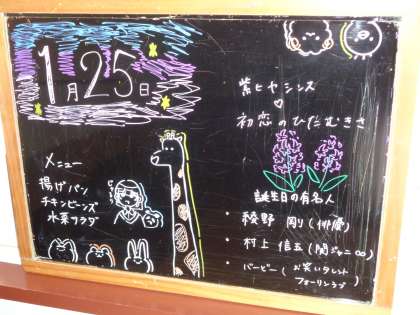 1月25日
・紫ヒヤシンス
♡
初恋のひたむきさ
メニュー
揚げパン
チキンビーンズ
水菜サラダ
誕生日の有名人
・綾野 剛(俳優)
・村上 信五(関ジャニ∞)
・バービー(お笑いタレント
フォーリンラブ